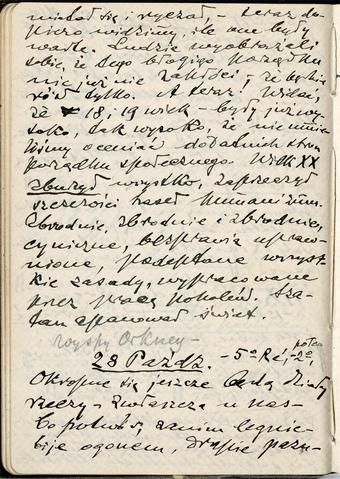 miotał się i ryczał, – teraz do-
piero widzimy, ile one były
warte. Ludzie wyobrażali
sobie, że tego błogiego porządku
nic już nie zakłóci, że będzie
tylko. A teraz! Widać,
że 18 i 19 wiek – były już wy-
soko, tak wysoko, że nie umie-
liśmy oceniać dodatnich stron
porządku społecznego. Wiek XX
zburzył wszystko, zaprzeczył
szczerości haseł humanizmu.
Zbrodnie, zbrodnie i zbrodnie,
cyniczne, bezprawia upraw-
nione, podeptane wszyst-
kie zasady, wypracowane
przez pracę pokoleń. Sza-
tan opanował świat.
wyspy Orkney –
28 Paźdz. – 5° Ré, potem -2°,
Okropne się jeszcze będą działy
rzeczy, zwłaszcza u nas –
Co potwór, zanim legnie –
bije ogonem, drapie pazu-